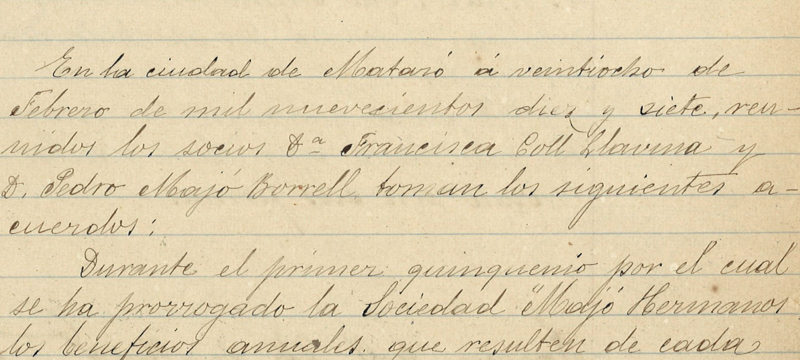 En la ciudad de Mataró á veintiocho de
Febrero de mil nuevecientos diez y siete, reu-
nidos los socios Dª Francisca Coll Llavina y
D. Pedro Majó Borrell toman los siguientes a-
cuerdos:
Durante el primer quinquenio por el cual
se ha prorrogado la Sociedad "Majó Hermanos
los beneficios anuales que resulten de cada